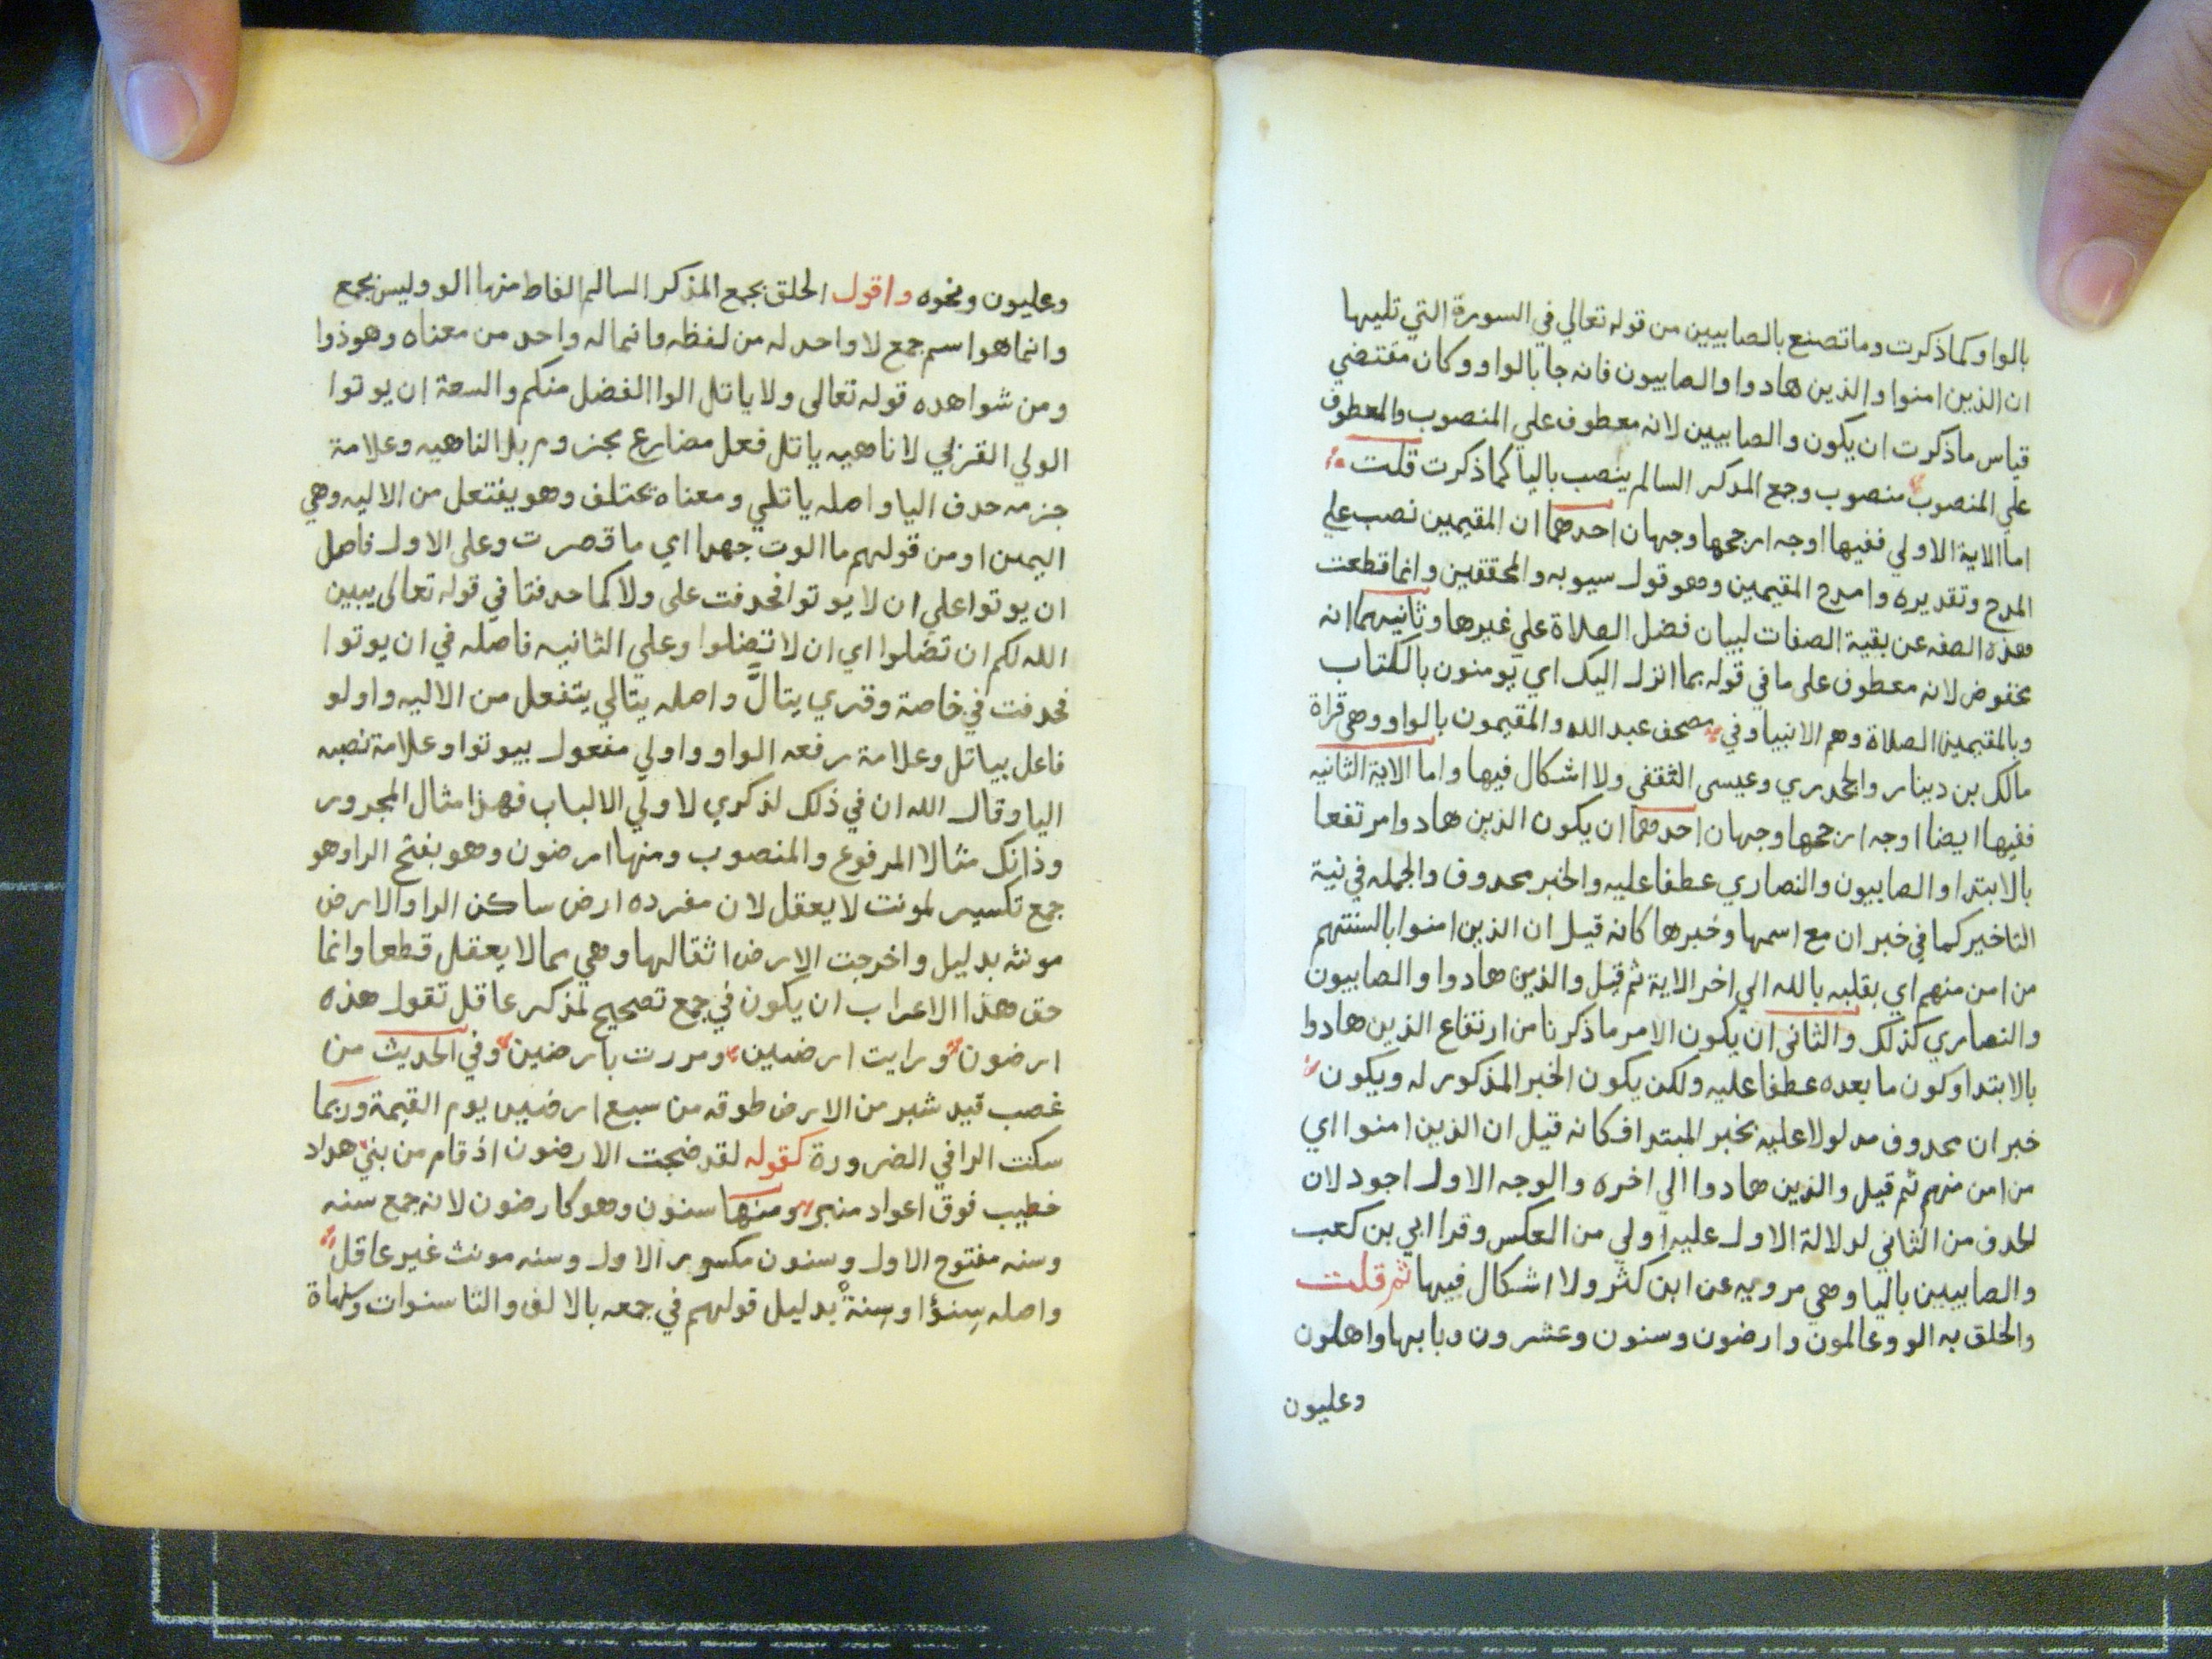 بالواو كما ذكرت وما تصنع بالصابيين من قوله تعالي في السورة التي تليها
ان الذين امنوا والذين هادوا والصابيون فانه جا بالواو وكان مقتضي
قياس ما ذكرت ان يكون والصابيين لانه معطوف علي المنصوب والمعطوف
علي المنصوب منصوب وجمع المدكر السالم ينصب باليا كما ذكرت قلت
اما الاية الاولي ففيها اوجه ارجحها وجهان احدهما ان المقيمين نصب علي
المدح وتقديره وامدح المقيمين وهو قول سيبويه والمحققين وانما قطعت
هذه الصفه عن بقية الصفات لبيان فضل الصلاة علي غيرها وثانيهما انه
مخفوض لانه معطوف على ما في قوله بما انزل اليك اي يومنون بالكتاب
وبالمقيمين الصلاة وهم الانبيا وفي مصحف عبد الله والمقيمون بالواو وهي قراة
مالك بن دينار والجحدري وعيسى الثقفى ولا اشكال فيها واما الاية الثانيه
ففيها ايضا اوجه ارجحها وجهان احدهما ان يكون الذين هادوا مرتفعا
بالابتدا والصابيون والنصاري عطفا عليه والخبر محدوف والجمله في نية
التاخير كما في خبر ان مع اسمها وخبرها كانه قيل ان الذين امنوا بالسنتهم
من امن منهم اي بقلبه بالله الي اخر الاية ثم قيل والذين هادوا والصابيون
والنصاري كذلك والثاني ان يكون الامر ما ذكرنا من ارتفاع الذين هادوا
بالابتدا وكون ما بعده عطفا عليه ولكن يكون الخبر المذكور له ويكون
خبر ان محدوف مدلولا عليه بخبر المبتدا فكانه قيل ان الذين امنوا اي
من امن منهم ثم قيل والذين هادوا الي اخره والوجه الاول اجود لان
الحدف من الثاني لدلالة الاول عليه اولي من العكس وقرا ابي بن كعب
والصابيين باليا وهي مرويه عن ابن كثر ولا اشكال فيها ثم قلت
والحلق به الوو عالمون وارضون وسنون وعشرون وبابها واهلون
وعليون
وعليون ونحوه واقول الحلق بجمع المذكر السالم الفاط منها الوو وليس بجمع
وانما هو اسم جمع لا واحد له من لفظه وانما له واحد من معناه وهو ذوا
ومن شواهده قوله تعالى ولا ياتل الوا الفضل منكم والسعة ان يوتوا
الولي القزلي لا ناهيه ياتل فعل مضارع مجزوم بلا الناهيه وعلامة
جزمه حدف اليا واصله ياتلي ومعناه يحتلف وهو يفتعل من الاليه وهي
اليمين او من قولهم ما الوت جهدا اي ما قصرت وعلى الاول فاصل
ان يوتوا علي ان لا يوتوا فحدفت على ولا كما حدفتا في قوله تعالى يبين
الله لكم ان تضلوا اي ان لا تضلوا وعلي الثانيه فاصله في ان يوتوا
فحدفت في خاصة وقري يتالَّ واصله يتالي يتفعل من الاليه واولو
فاعل بياتل وعلامة رفعه الواو واولي مفعول بيوتوا وعلامة نصبه
اليا وقال الله ان في ذلك لذكري لاولي الالباب فهذا مثال المجرور
وذانك مثالا المرفوع والمنصوب ومنها ارضون وهو بفتح الرا وهو
جمع تكسير لمونث لا يعقل لان مفرده ارض ساكن الرا والارض
مونثه بدليل واخرجت الارض اثقالها وهي مما لا يعقل قطعا وانما
حق هذا الاعراب ان يكون في جمع تصحيح لمذكر عاقل تقول هذه
ارضون ورايت ارضين ومررت بارضين وفي الحديث من
غصب قيد شبر من الارض طوقه من سبع ارضين يوم القيمة وربما
سكنت الرا في الضرورة كقوله لقد ضجت الارضون اذ قام من بني هداد
خطيب فوق اعواد منبر ومنها سنون وهو كارضون لانه جمع سنه
وسنه مفتوح الاول وسنون مكسور الاول وسنه مونث غير عاقل
واصله سنؤ او سنة بدليل قولهم في جمعه بالالف والتا سنوات وسنهاة